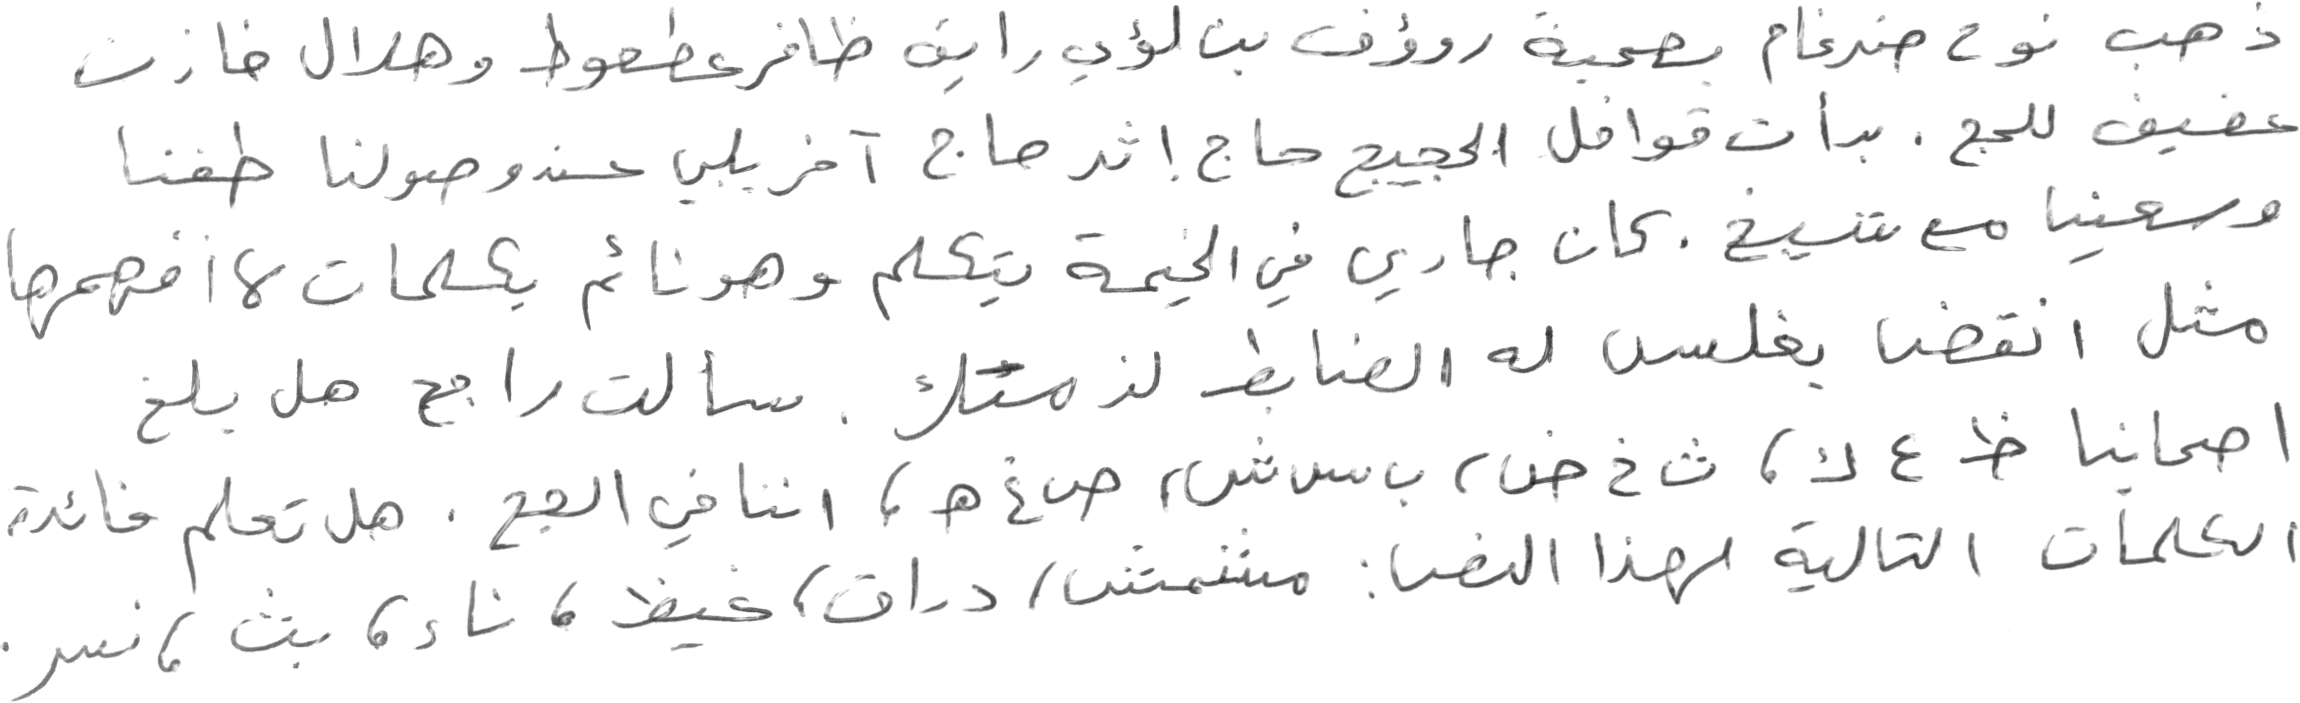 ذهب نوح ضرغام بصحبة رؤوف بن لؤي راية ظافر عطعوط وهلال خازن
عفيف للحج . بدأت قوافل الحجيج حاج إثر حاج آخر يلبي عند وصولنا طفنا
وسعينا مع شيخ . كان جاري في الخيمة يتكلم وهو نائم بكلمات لا أفهمها
مثل انقض بغلس له الضابط لذمتك . سألت راجح هل بلغ
اصحابنا ظ ع ك ، ث خ ض ، ب س ش ، ص غ ه ، اننا في الحج . هل تعلم فائدة
الكلمات التالية لهذا النص : مشمش ، دراق ، غيظ ، ناء ، بث ، نسر .